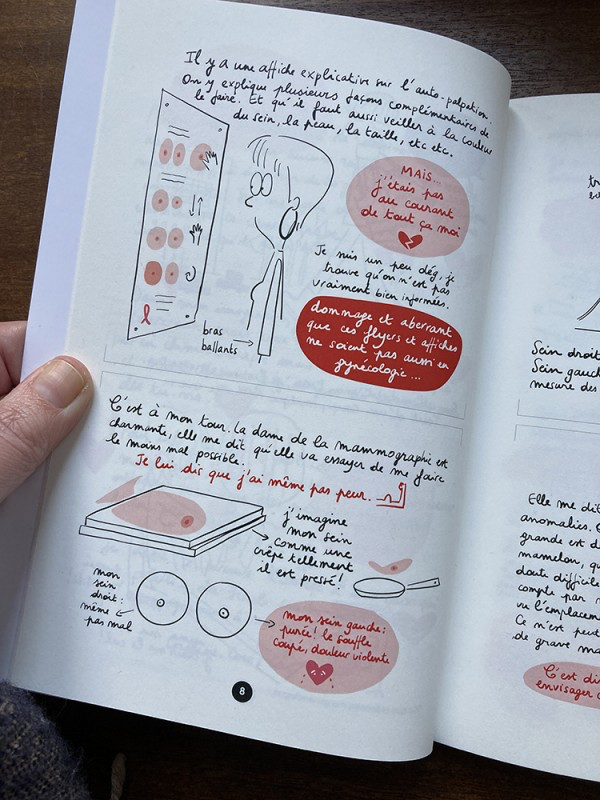 Il y a une affiche explicative sur l'auto-palpation.
On y explique plusieurs façons complémentaires de
le faire. Et qu'il faut aussi veiller à la couleur
du sein, la peau, la taille, etc etc.
MAIS...
j'étais pas
au courant
de tout ça moi
Je suis un peu dég, je
trouve qu'on n'est pas
vraiment bien informées.
dommage et aberrant
que ces flyers et affiches
ne soient pas aussi en
gynécologie...
bras
ballants
C'est à mon tour. La dame de la mammographie est
charmante, elle me dit qu'elle va essayer de me faire
le moins mal possible.
Je lui dis que j'ai même pas peur.
j'imagine
mon sein
comme une
crêpe tellement
il est pressé!
mon
sein
droit:
même
pas mal
mon sein gauche:
purée! le souffle
coupé, douleur violente
8
Sein droit
Sein gauche
mesure des
Elle me dit
anomalies.
grande est d
mamelon, qu
doute difficile
compte par
vu l'emplacem
Ce n'est peut
de grave ma
C'est di
envisager